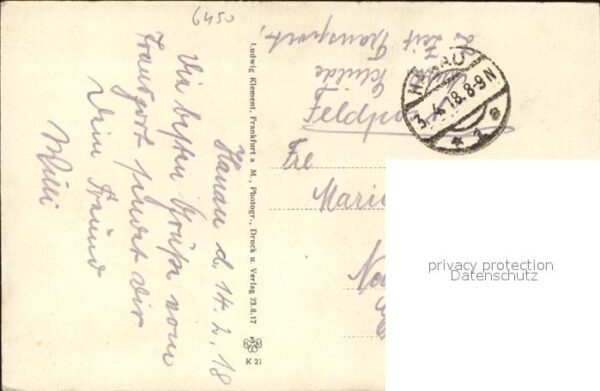 6450
Hanau d. 14.2.18
Die besten Grüße vom
Transport sendet Dir
Dein Freund
Willi
Ludwig Klement, Frankfurt a M., Photogr., Druck u. Verlag 23.8.17
K 21
z. Zeit Transport,
Feldpost
HANAU
3.4.18.8-9N
* 1 e
Frl
Marie
privacy protection
Datenschutz